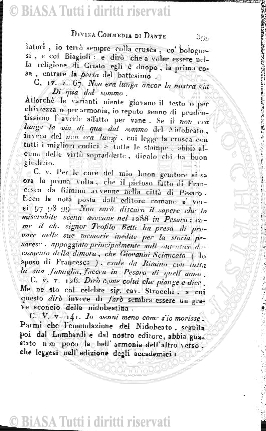 © BiASA Tutti i diritti riservati
DIVINA COMMEDIA DI DANTE
iatori, io terrò sempre colla crusca, co' bologne-
si, e col Biagioli: e dirò che a voler essere nel-
la religione di Cristo egli è d'uopo, la prima co-
sa, entrare la porta del battesimo.
C. IV. v. 67. Non era lunga ancor la nostra via
Di qua dal sommo.
Allorchè le varianti niente giovano il testo o per
chiarezza o per armonia, io reputo senno di pruden-
tissimo l'averle affatto per vane. Se il non era
lunga la via di qua dal sommo del Nidobeato,
invece del non era lungi, cui legge la crusca con
tutti i migliori codici e tutte le stampe, abbia al-
cuna delle virtù sopraddette, dicalo chi ha buon
giudicio.
C. V. Per le cure del mio buon genitore si sa
ora la prima volta, che il pietoso fatto di Fran-
cesca da Rimini avvenne nella città di Pesaro.
Ecco la nota posta dall'editore romano a' ver-
si 97 98 99 Non sarà discaro il sapere che la
miserabile scena avvenne nel 1288 in Pesaro: co-
me il ch. signor Teofilo Betti ha preso di pro-
vare nelle sue memorie inedite per la storia pe-
sarese: appoggiato principalmente sull'
dimora, che Giovanni Sciancato (lo
sposo di Francesca), esule da Rimini con tutta
la sua famiglia, faceva in Pesaro di quell'anno.
C. V. v. 126. Dirò come colui che piange e dice.
Me ne sto col celebre sig. cav. Strocchi, a cui
questo dirò invece di farò sembra essere un gra-
ve sconcio della nidobeatina.
C. V. v. 141. Io venni men così com'io morisse.
Parmi che l'emendazione del Nidobeato, seguita
poi dal Lombardi e dal nostro editore, abbia gua-
stato non poco la bell'armonia dell'altro verso,
che leggesi nell'edizione degli accademici:
© BiASA Tutti i diritti riservati